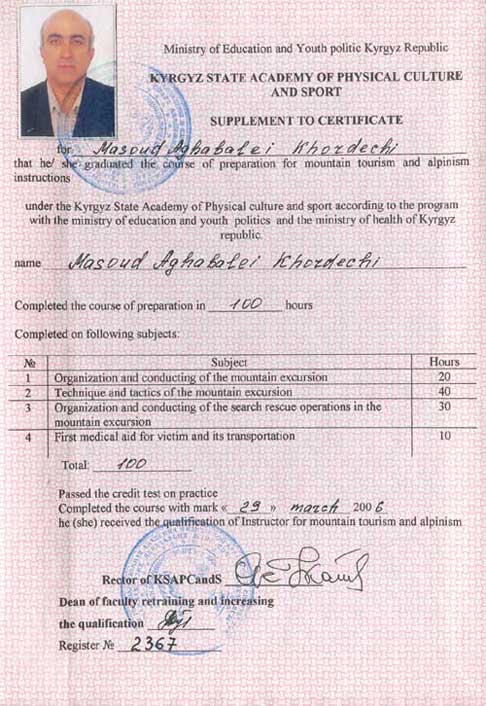 Ministry of Education and Youth politic Kyrgyz Republic
KYRGYZ STATE ACADEMY OF PHYSICAL CULTURE
AND SPORT
SUPPLEMENT TO CERTIFICATE
for Masoud Aghabalei Khordechi
that he/ she graduated the course of preparation for mountain tourism and alpinism
instructions
under the Kyrgyz State Academy of Physical culture and sport according to the program
with the ministry of education and youth politics and the ministry of health of Kyrgyz
republic.
name Masoud Aghabalei Khordechi
Completed the course of preparation in 100 hours
Completed on following subjects:
№ Subject Hours
1 Organization and conducting of the mountain excursion 20
2 Technique and tactics of the mountain excursion 40
3 Organization and conducting of the search rescue operations in the 30
mountain excursion
4 First medical aid for victim and its transportation 10
Total: 100
Passed the credit test on practice
Completed the course with mark « 29 » march 2006
he (she) received the qualification of Instructor for mountain tourism and alpinism
Rector of KSAPCandS
Dean of faculty retraining and increasing
the qualification
Register № 2367